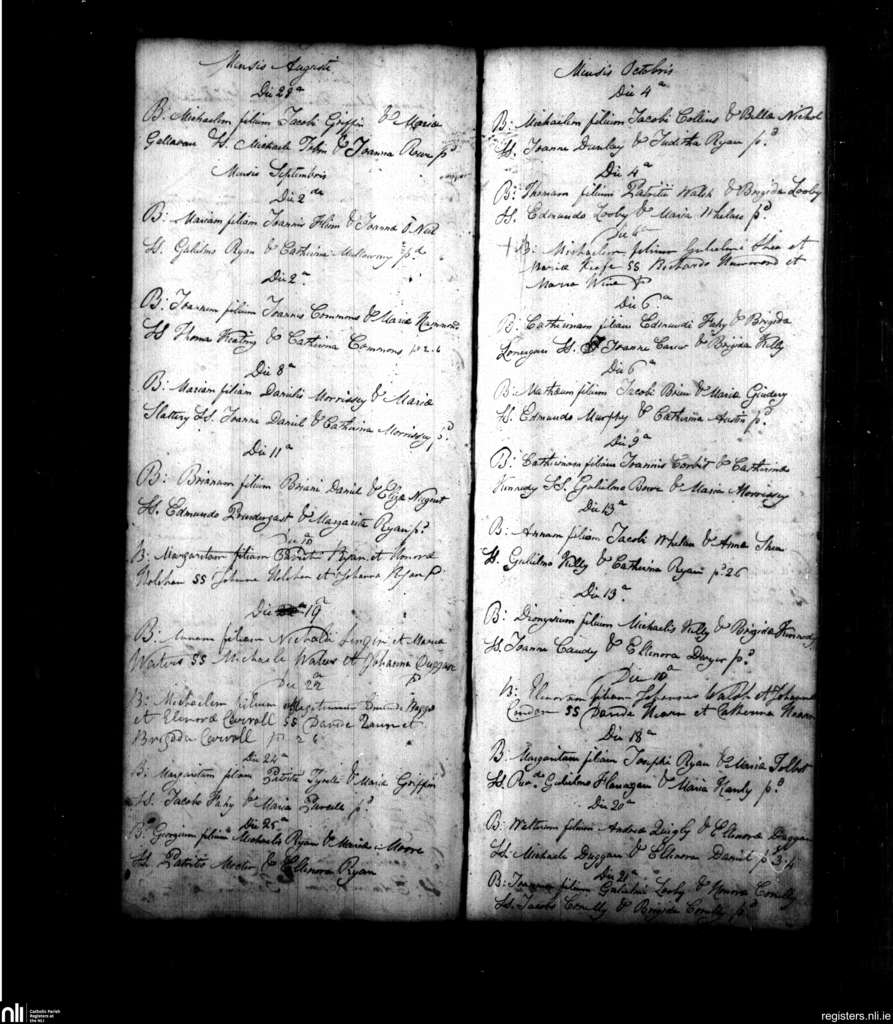 Mensis Augusti
Die 28a
B: Michaelem filium Jacobi Griffin & Maria
Gallavan SS. Michaele Tobin & Joanna Rowe pd
Mensis Septembris
Die 2da
B: Mariam filiam Joannis Hlbin & Joanna O Neil
SS. Gulielmo Ryan & Catherina Mullowney pd
Die 2a
B: Joannem filium Joannis Commons & Maria Hammond
SS Thoma Keating & Catherina Commons p 2.6
Die 8a
B: Mariam filiam Danielis Morrissey & Maria
Slattery SS. Joanne Daniel & Catherina Morrissey pd
Die 11a
B: Brianum filium Briani Daniel & Eliza Nugent
SS. Edmundo Prendergast & Margarita Ryan pd
Die 18
B: Margaritam filiam Patritii Ryan et Honora
Holohan SS Johanne Holohan et Johanna Ryan p
Die 19
B: Annam filiam Nicholai et Maria
Waters SS Michaele Waters et Johanna Duggan
pd
Die 22
B: Michaelem filium illegitimum
et Elenora Carroll SS Davide et
Brigida Carroll p 2 6
Die 24a
B: Margaritam filiam Patritii Tyrell & Maria Griffin
SS. Jacobo Fahy & Maria Purcell pd
Die 25a
B: Georgium filium Michaelis Ryan & Maria Moore
SS Patritio Moore & Ellenora Ryan
Mensis Octobris
Die 4a
B: Michaelem filium Jacobi Collins & Bella Nichol
SS. Joanne Dunlay & Juditha Ryan pd
Die 4a
B: Thomam filium Patritii Walsh & Brigida Looby
SS. Edmundo Looby & Maria Whelan pd
Die 4a
+ B: Michaelem filium Gulielmi Shea et
Maria Keefe SS Richardo Hammond et
Maria p
Die 6a
B: Catherinam filiam Edmundi Fahy & Brigida
Lonergan SS. Joanne Carew & Brigida Kelly
Die 6a
B: Mathaum filium Jacobi Brien & Maria
SS. Edmundo Murphy & Catherina Austin pd
Die 9a
B: Catherinam filiam Joannis Corbit & Catherina
Kennedy SS Gulielmo Bowe & Maria Morrissey
Die 13a
B: Annam filiam Jacobi Whelan & Anna Shea
SS. Gulielmo Kelly & Catherina Ryan p 2 6
Die 13a
B: Dionysium filium Michaelis Kelly & Brigida Kennedy
SS. Joanne Caudy & Ellenora Dwyer pd
Die 18a
B: Elenoram filiam Johannis Walsh et Johanna
Condon SS Davide Hearn et Catherina Hearn
Die 18a
B: Margaritam filiam Josephi Ryan & Maria Talbot
SS. Revdo Gulielmo Flanagan & Maria Hanly pd
Die 20a
B: Walterum filium Andrea Quigly & Ellenora Duggan
SS Michaele Duggan & Ellenora Daniel p 3:4
Die 21a
B: Joannem filium Gulielmi Looby & Honora Conelly
SS. Jacobo Conelly & Brigida Conelly pd
nli
Catholic Parish
Registers at
the NLI
registers.nli.ie